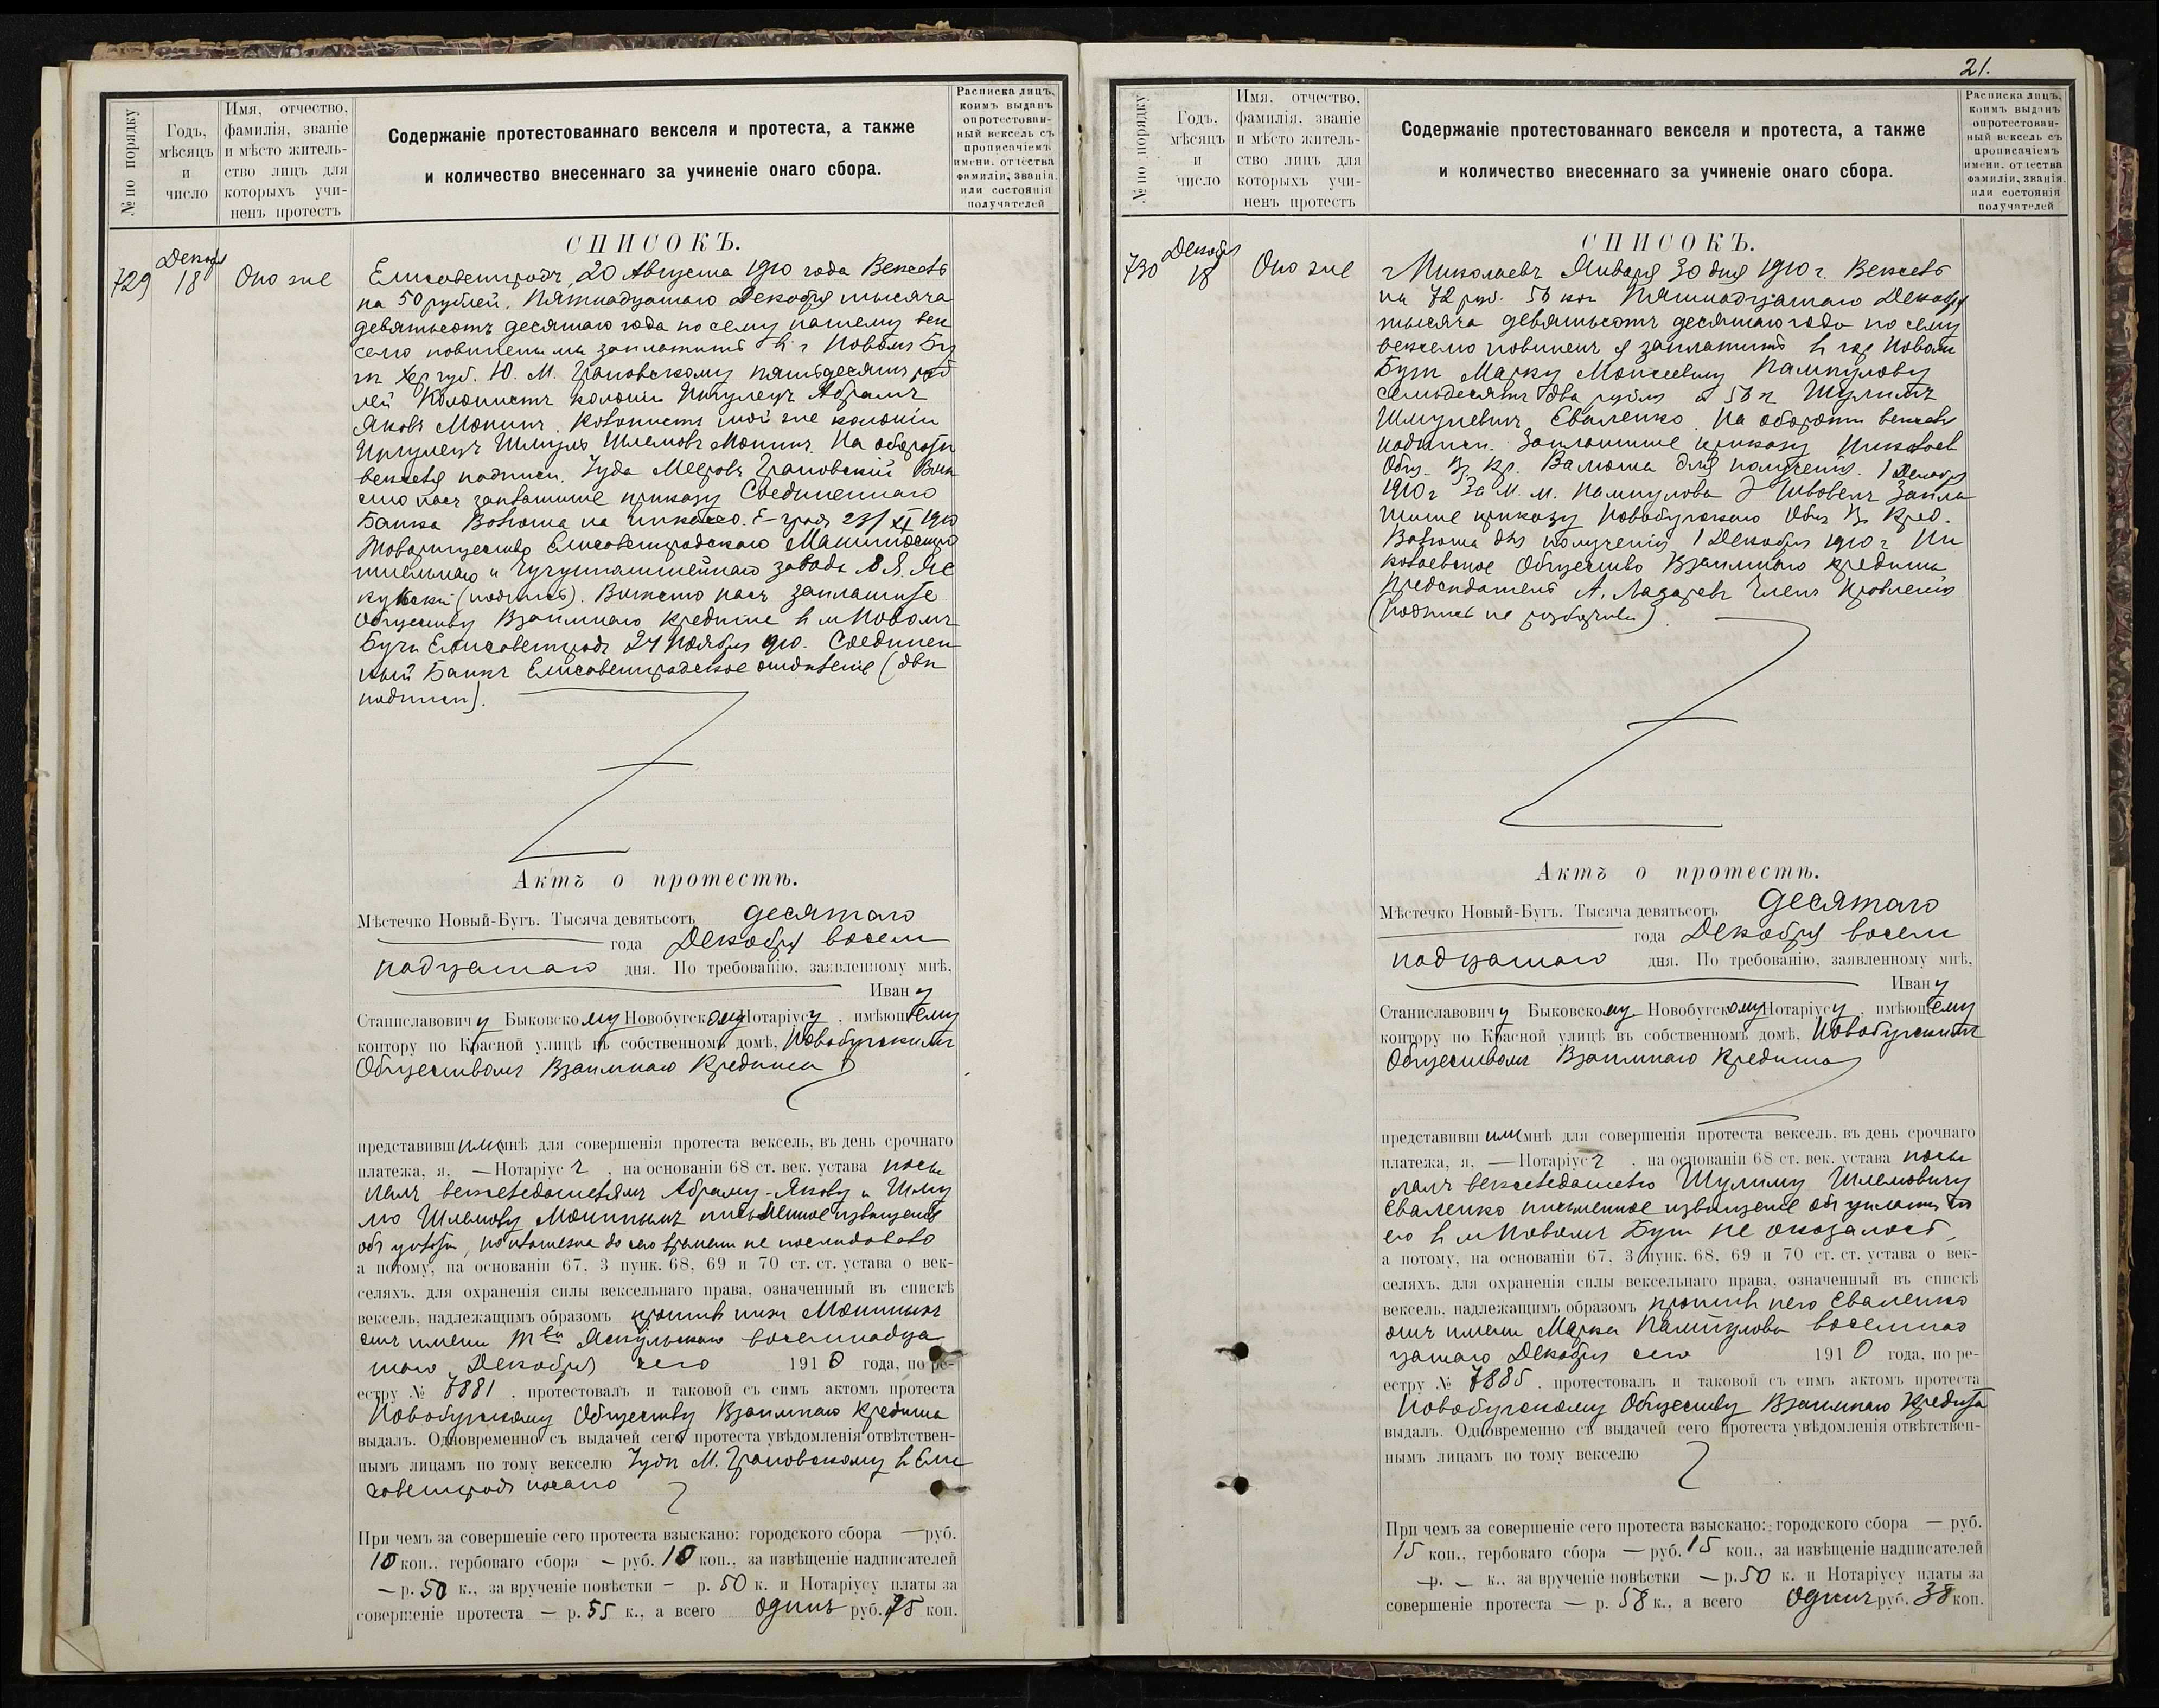 № по порядку
Годъ, мѣсяцъ и число
Имя, отчество, фамилія, званіе и мѣсто жительство лицъ для которыхъ учиненъ протестъ
Содержаніе протестованнаго векселя и протеста, а также
и количество внесеннаго за учиненіе онаго сбора.
Расписка лицъ, коимъ выданъ опротестованный вексель съ прописаніемъ имени, отчества фамиліи, званія, или состоянія получателей
СПИСОКЪ.
729
Декабря 18
Оно же
Елисаветградъ, 20 Августа 1910 года Вексель
на 50 рублей. Пятнадцатаго Декабря тысяча
девятьсотъ десятаго года по сему нашему век
селю повинны мы заплатить въ г Новомъ Бу
гѣ Хер губ. Ю. М. Грановскому пятьдесятъ руб
лей Колонистъ колоніи Ингулецъ Абрамъ
Яковъ Монинъ. Колонистъ той же колоніи
Ингулецъ Шмуль Шлемовъ Монинъ. На оборотѣ
векселя надписи. Іуда Мееровъ Грановскій Вмѣ
сто насъ заплатите приказу Соединеннаго
Банка Валюта на инкассо. Е-градъ 23/XI 1910
Товарищество Елисаветградскаго Машиностро
ительнаго и Чугунолитейнаго завода
(подпись). Вмѣсто насъ заплатите
Обществу Взаимнаго Кредита въ м Новомъ
Бугѣ Елисаветградъ 24 Ноября 910. Соединен
ный Банкъ Елисаветградское отдѣленіе (двѣ
подписи).
Актъ о протестѣ.
Мѣстечко Новый-Бугъ. Тысяча девятьсотъ десятаго
года Декабря восем
надцатаго дня. По требованію, заявленному мнѣ,
Ивану
Станиславовичу Быковскому Новобугскому Нотаріусу, имѣющему
контору по Красной улицѣ въ собственномъ домѣ, Новобугскимъ
Обществомъ Взаимнаго Кредита
представившимъ мнѣ для совершенія протеста вексель, въ день срочнаго
платежа, я, — Нотаріусъ, на основаніи 68 ст. век. устава посы
лалъ векселедателямъ Абраму-Якову и Шму
лю Шлемову Монинымъ письменное извѣщеніе
объ уплатѣ, но платежа до сего времени не послѣдовало
а потому, на основаніи 67, 3 пунк. 68, 69 и 70 ст. ст. устава о век-
селяхъ, для охраненія силы вексельнаго права, означенный въ спискѣ
вексель, надлежащимъ образомъ противъ нихъ Мониныхъ
отъ имени Т-ва Яскульскаго восемнадца
таго Декабря сего 1910 года, по ре-
естру № 7881. протестовалъ и таковой съ симъ актомъ протеста
Новобугскому Обществу Взаимнаго Кредита
выдалъ. Одновременно съ выдачей сего протеста увѣдомленія отвѣтствен-
нымъ лицамъ по тому векселю Іудѣ М. Грановскому въ Ели
саветградъ послано
При чемъ за совершеніе сего протеста взыскано: городского сбора — руб.
10 коп., гербоваго сбора — руб. 10 коп., за извѣщеніе надписателей
— р. 50 к., за врученіе повѣстки — р. 50 к. и Нотаріусу платы за
совершеніе протеста — р. 55 к., а всего одинъ руб. 75 коп.
21.
№ по порядку
Годъ, мѣсяцъ и число
Имя, отчество, фамилія, званіе и мѣсто жительство лицъ для которыхъ учиненъ протестъ
Содержаніе протестованнаго векселя и протеста, а также
и количество внесеннаго за учиненіе онаго сбора.
Расписка лицъ, коимъ выданъ опротестованный вексель съ прописаніемъ имени, отчества фамиліи, званія, или состоянія получателей
СПИСОКЪ.
730
Декабря 18
Оно же
г Николаевъ Января 30 дня 1910 г. Вексель
на 72 руб. 56 коп Пятнадцатаго Декабря
тысяча девятьсотъ десятаго года по сему
векселю повиненъ я заплатить въ гор Новомъ
Бугѣ Марку Моисеевичу
семьдесятъ два рубля и 56 к Шулимъ
Шмулевичъ Сваленко. На оборотѣ векселя
надписи. Заплатите приказу Николаев
Общ. Вз. Кр. Валюта для полученія. 1 Декабря
1910 г За М. М. Запла
тите приказу Новобугскаго Общ Вз Кред.
Валюта для полученія 1 Декабря 1910 г Ни
колаевское Общество Взаимнаго кредита
Предсѣдатель А. Лазаревъ Членъ Правленія
(подпись не разборчива).
Актъ о протестѣ.
Мѣстечко Новый-Бугъ. Тысяча девятьсотъ десятаго
года Декабря восем
надцатаго дня. По требованію, заявленному мнѣ,
Ивану
Станиславовичу Быковскому Новобугскому Нотаріусу, имѣющему
контору по Красной улицѣ въ собственномъ домѣ, Новобугскимъ
Обществомъ Взаимнаго Кредита
представившимъ мнѣ для совершенія протеста вексель, въ день срочнаго
платежа, я, — Нотаріусъ, на основаніи 68 ст. век. устава посы
лалъ векселедателю Шулиму Шлемовичу
Сваленко письменное извѣщеніе объ уплатѣ но
его въ м Новомъ Бугѣ не оказалось,
а потому, на основаніи 67, 3 пунк. 68, 69 и 70 ст. ст. устава о век-
селяхъ, для охраненія силы вексельнаго права, означенный въ спискѣ
вексель, надлежащимъ образомъ противъ него Сваленко
отъ имени Марка восемнад
цатаго Декабря сего 1910 года, по ре-
естру № 7885. протестовалъ и таковой съ симъ актомъ протеста
Новобугскому Обществу Взаимнаго Кредита
выдалъ. Одновременно съ выдачей сего протеста увѣдомленія отвѣтствен-
нымъ лицамъ по тому векселю
При чемъ за совершеніе сего протеста взыскано: городского сбора — руб.
15 коп., гербоваго сбора — руб. 15 коп., за извѣщеніе надписателей
— р. — к., за врученіе повѣстки — р. 50 к. и Нотаріусу платы за
совершеніе протеста — р. 58 к., а всего Одинъ руб. 38 коп.